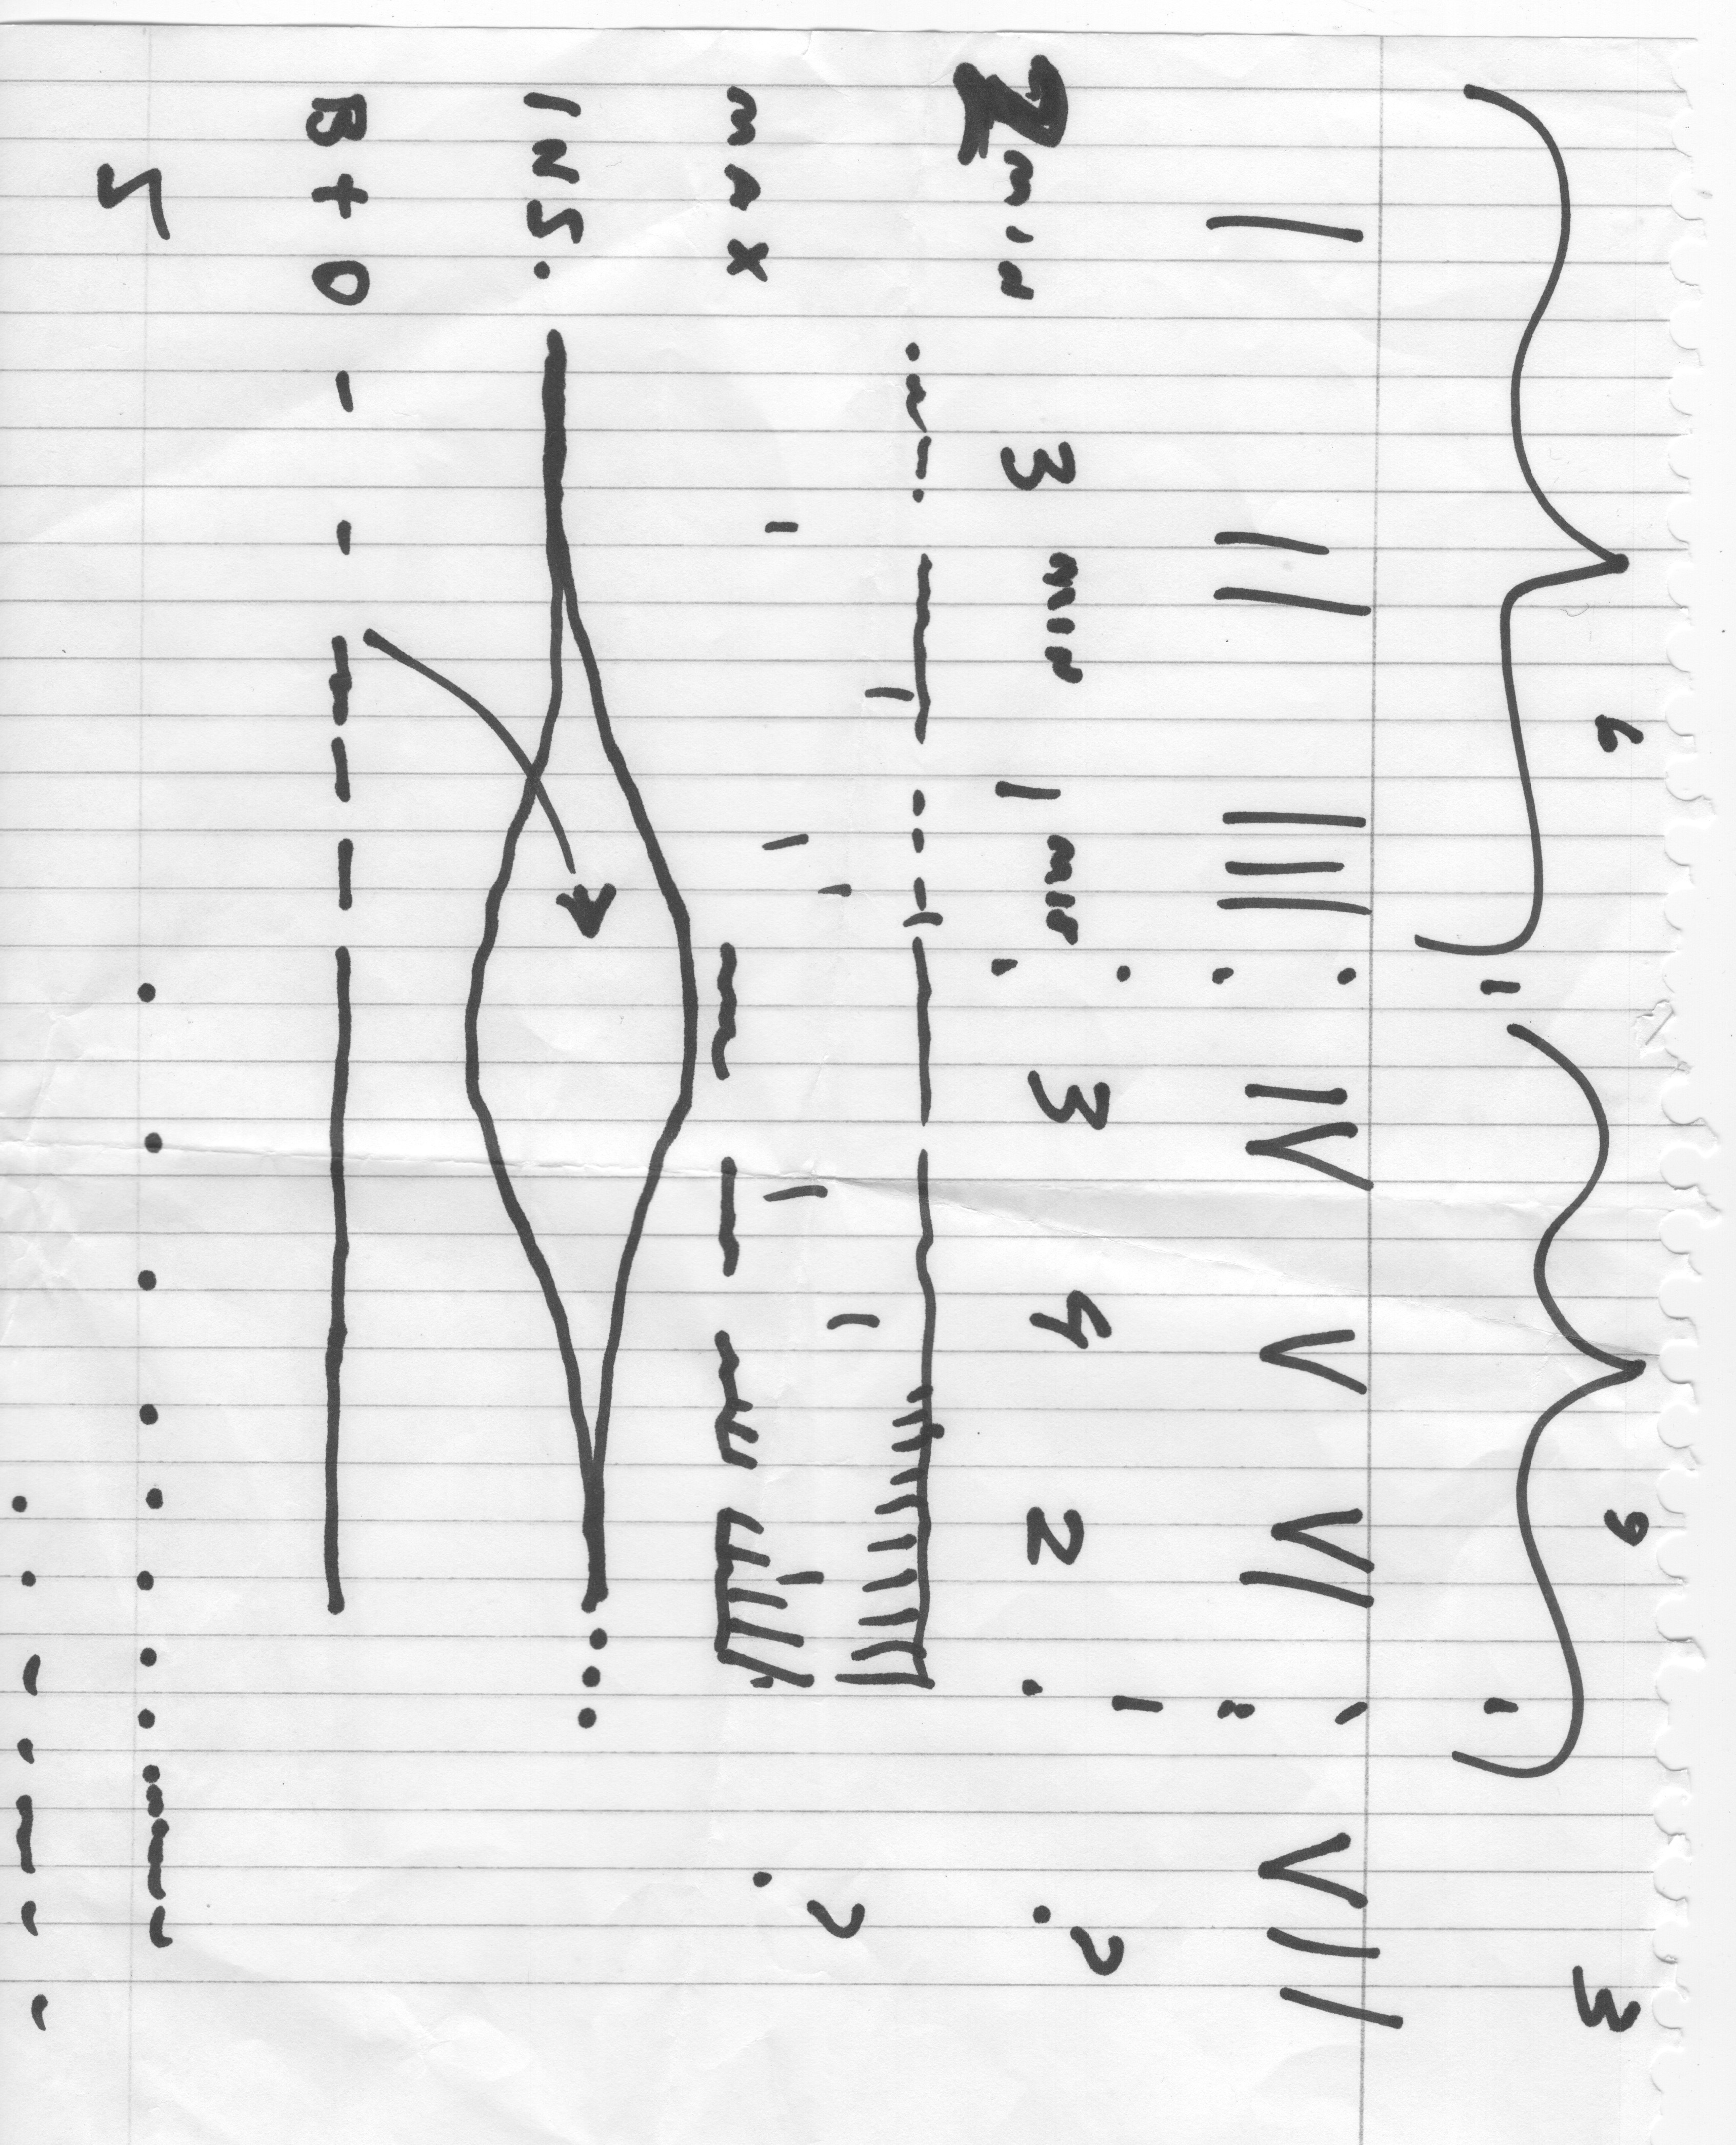 6 9 3
I II III IV V VI VII
2 min 3 min 1 min 3 4 2 ?
max ?
INS.
B + D
S